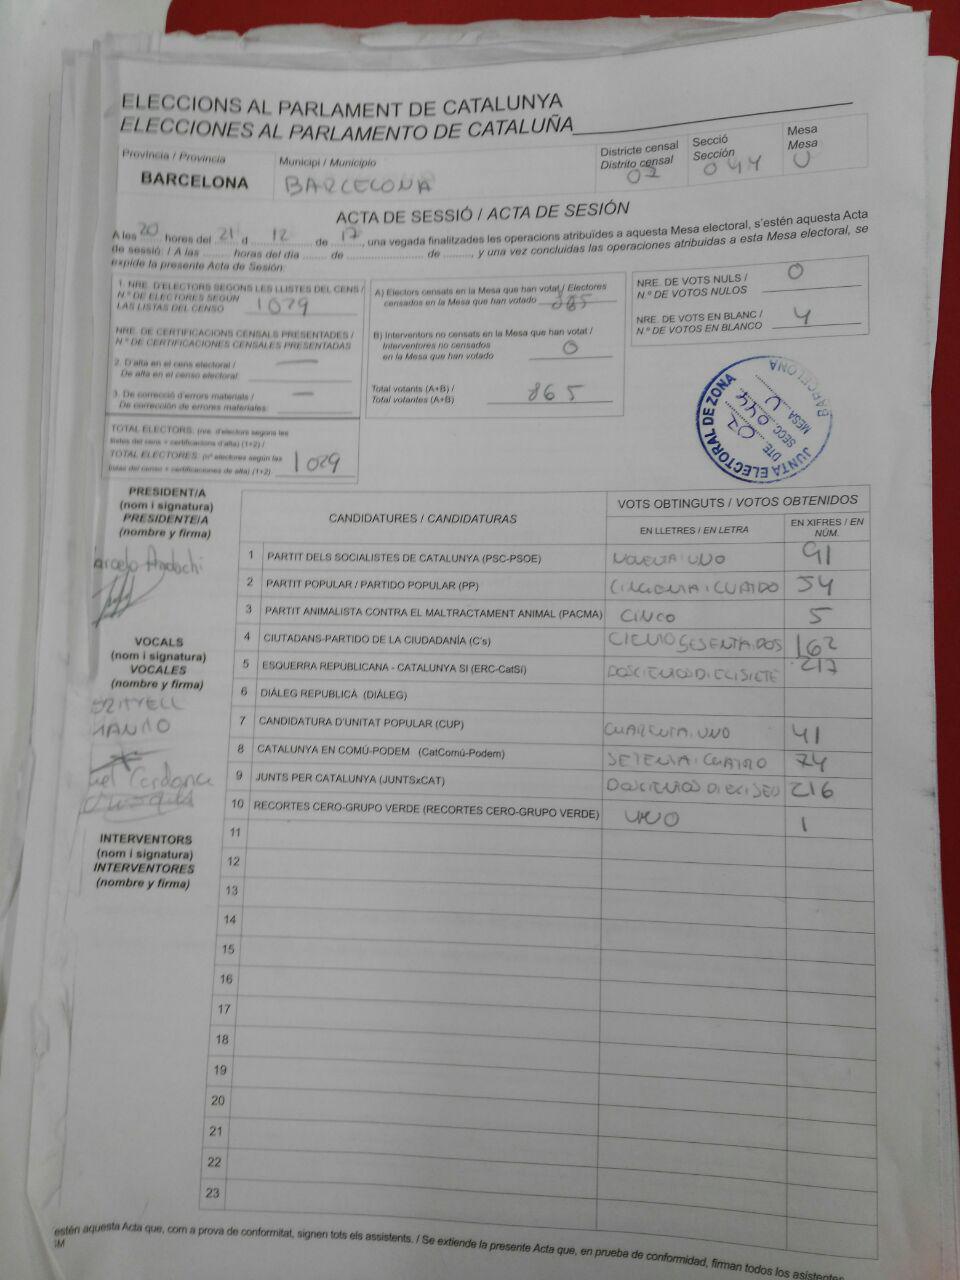 ELECCIONS AL PARLAMENT DE CATALUNYA
ELECCIONES AL PARLAMENTO DE CATALUÑA
Província / Provincia
BARCELONA
Municipi / Municipio
BARCELONA
Districte censal
Distrito censal
02
Secció
Sección
044
Mesa
Mesa
U
ACTA DE SESSIÓ / ACTA DE SESIÓN
A les 20 hores del 21 d 12 de 17, una vegada finalitzades les operacions atribuïdes a aquesta Mesa electoral, s'estén aquesta Acta
de sessió: / A las ........ horas del día ....... de ........................ de ........., y una vez concluidas las operaciones atribuidas a esta Mesa electoral, se
expide la presente Acta de Sesión:
1. NRE. D'ELECTORS SEGONS LES LLISTES DEL CENS /
N.º DE ELECTORES SEGÚN
LAS LISTAS DEL CENSO
1029
NRE. DE CERTIFICACIONS CENSALS PRESENTADES /
N.º DE CERTIFICACIONES CENSALES PRESENTADAS
2. D'alta en el cens electoral /
De alta en el censo electoral:
3. De correcció d'errors materials /
De corrección de errores materiales:
TOTAL ELECTORS: (nre. d'electors segons les
llistes del cens + certificacions d'alta) (1+2) /
TOTAL ELECTORES: (nº electores según las
listas del censo + certificaciones de alta) (1+2)
1029
A) Electors censats en la Mesa que han votat / Electores
censados en la Mesa que han votado
865
B) Interventors no censats en la Mesa que han votat /
Interventores no censados
en la Mesa que han votado
0
Total votants (A+B) /
Total votantes (A+B)
865
NRE. DE VOTS NULS /
N.º DE VOTOS NULOS
0
NRE. DE VOTS EN BLANC /
N.º DE VOTOS EN BLANCO
4
JUNTA ELECTORAL DE ZONA
BARCELONA
DTE. 02
SECC. 044
MESA U
PRESIDENT/A
(nom i signatura)
PRESIDENTE/A
(nombre y firma)
VOCALS
(nom i signatura)
VOCALES
(nombre y firma)
INTERVENTORS
(nom i signatura)
INTERVENTORES
(nombre y firma)
CANDIDATURES / CANDIDATURAS
VOTS OBTINGUTS / VOTOS OBTENIDOS
EN LLETRES / EN LETRA
EN XIFRES / EN NÚM.
1 PARTIT DELS SOCIALISTES DE CATALUNYA (PSC-PSOE) NOVENTA I UNO 91
2 PARTIT POPULAR / PARTIDO POPULAR (PP) CINCUENTA I CUATRO 54
3 PARTIT ANIMALISTA CONTRA EL MALTRACTAMENT ANIMAL (PACMA) CINCO 5
4 CIUTADANS-PARTIDO DE LA CIUDADANÍA (C's) CIENTO SESENTA DOS 162
5 ESQUERRA REPUBLICANA - CATALUNYA SI (ERC-CatSí) DOSCIENTOS DIECISIETE 217
6 DIÀLEG REPUBLICÀ (DIÀLEG)
7 CANDIDATURA D'UNITAT POPULAR (CUP) CUARENTA UNO 41
8 CATALUNYA EN COMÚ-PODEM (CatComú-Podem) SETENTA I CUATRO 74
9 JUNTS PER CATALUNYA (JUNTSxCAT) DOSCIENTOS DIECISEIS 216
10 RECORTES CERO-GRUPO VERDE (RECORTES CERO-GRUPO VERDE) UNO 1
11
12
13
14
15
16
17
18
19
20
21
22
23
estén aquesta Acta que, com a prova de conformitat, signen tots els assistents. / Se extiende la presente Acta que, en prueba de conformidad, firman todos los asistentes